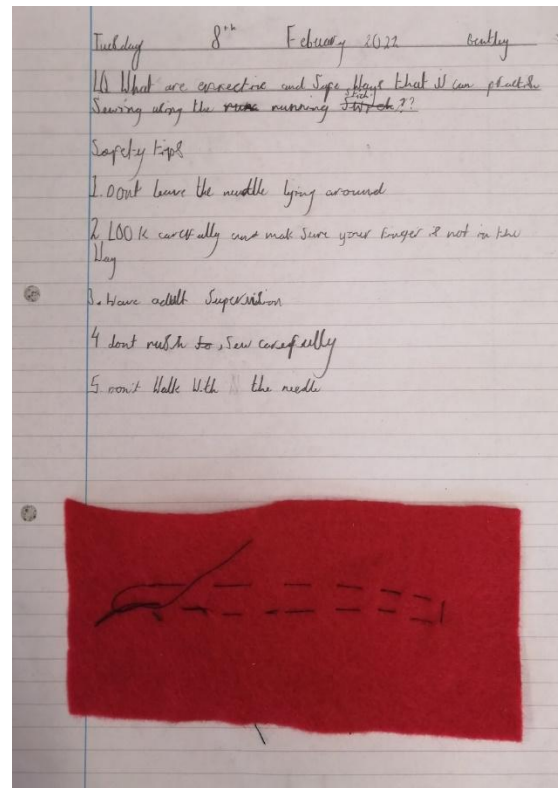 Tuesday 8th Febuary 2022 Bentley
LO What are effective and Safe Ways that it can practise
Sewing using the running Stich??
Safety tips
1. Dont leave the needle lying around
2 LOOk carefully and mak Sure your finger is not in the
Way
3. Have adult Supervision
4 dont rush to, Sew carefully
5. don't Walk With the needle